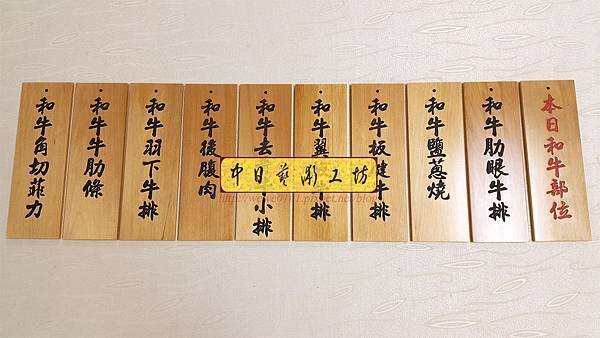 本日和牛部位
和牛肋眼牛排
和牛鹽蔥燒
和牛板腱牛排
和牛翼 排
和牛去 小排
和牛後腹肉
和牛羽下牛排
和牛牛肋條
和牛角切菲力
中日藝彫工坊